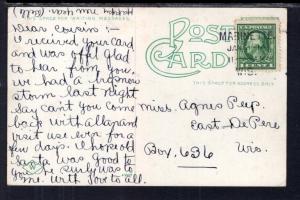 THIS SPACE FOR WRITING MESSAGES
Happy New Year
POST
CARD
THIS SPACE FOR ADDRESS ONLY
JA
WIS.
Dear cousins:-
I received your card
and was awful glad
to hear from you.
we had a
storm last night
Say can't you come
back with
visit us even for a
few days. I hope old
Santa was good to
you he surly was to
me. with love to all.
Miss. Agnes Peep.
East De Pere
Box. 636 Wis.